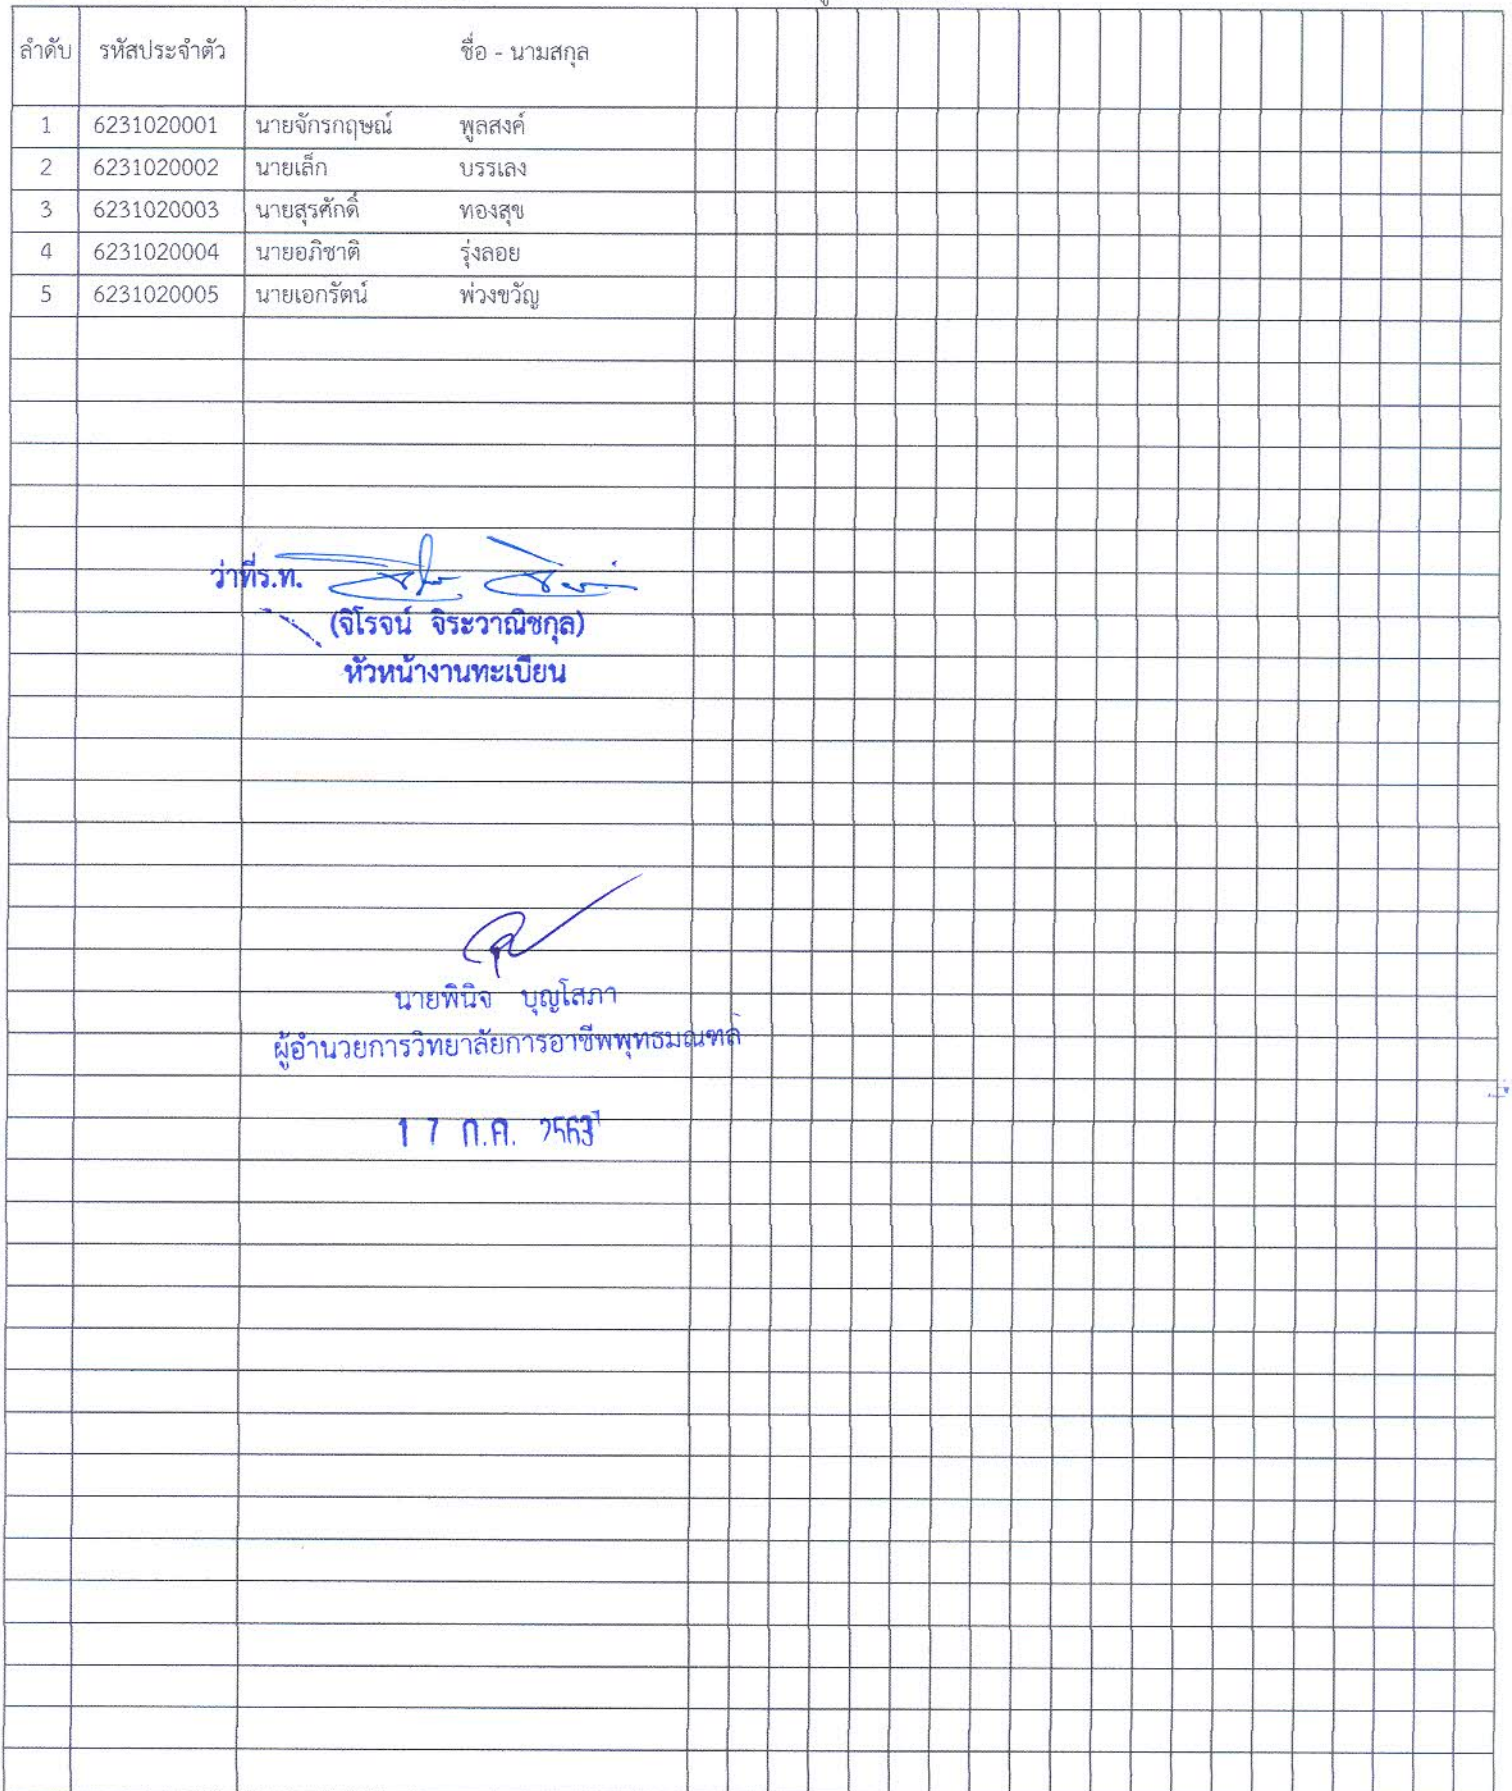 ลำดับ รหัสประจำตัว ชื่อ - นามสกุล
1 6231020001 นายจักรกฤษณ์ พูลสงค์
2 6231020002 นายเล็ก บรรเลง
3 6231020003 นายสุรศักดิ์ ทองสุข
4 6231020004 นายอภิชาติ รุ่งลอย
5 6231020005 นายเอกรัตน์ พ่วงขวัญ
ว่าที่ร.ท.
(จิโรจน์ จิระวาณิชกุล)
หัวหน้างานทะเบียน
นายพินิจ บุญโสภา
ผู้อำนวยการวิทยาลัยการอาชีพพุทธมณฑล
17 ก.ค. 2563